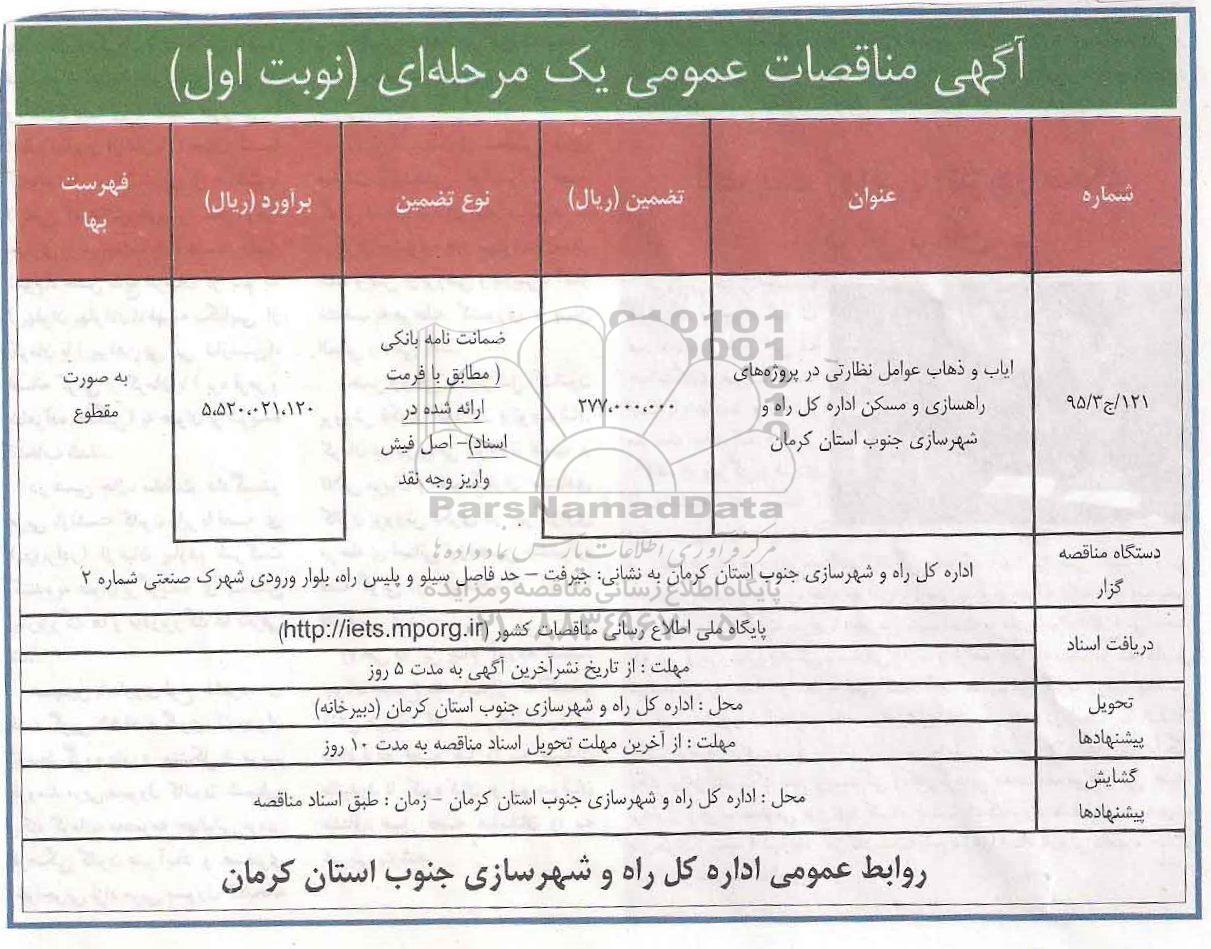 آگهی مناقصات عمومی یک مرحله‌ای (نوبت اول)
شماره
عنوان
تضمین (ریال)
نوع تضمین
برآورد (ریال)
فهرست
بها
۱۲۱/ج/۹۵/۳
ایاب و ذهاب عوامل نظارتی در پروژه‌های
راهسازی و مسکن اداره کل راه و
شهرسازی جنوب استان کرمان
۲۷۷،۰۰۰،۰۰۰
ضمانت نامه بانکی
( مطابق با فرمت
ارائه شده در
اسناد)– اصل فیش
واریز وجه نقد
۵،۵۲۰،۰۲۱،۱۲۰
به صورت
مقطوع
دستگاه مناقصه
گزار
اداره کل راه و شهرسازی جنوب استان کرمان به نشانی: جیرفت – حد فاصل سیلو و پلیس راه، بلوار ورودی شهرک صنعتی شماره ۲
دریافت اسناد
پایگاه ملی اطلاع رسانی مناقصات کشور (http://iets.mporg.ir)
مهلت : از تاریخ نشرآخرین آگهی به مدت ۵ روز
تحویل
پیشنهادها
محل : اداره کل راه و شهرسازی جنوب استان کرمان (دبیرخانه)
مهلت : از آخرین مهلت تحویل اسناد مناقصه به مدت ۱۰ روز
گشایش
پیشنهادها
محل : اداره کل راه و شهرسازی جنوب استان کرمان – زمان : طبق اسناد مناقصه
روابط عمومی اداره کل راه و شهرسازی جنوب استان کرمان
ParsNamadData
مرکز فرآوری اطلاعات پارس نماد داده‌ها
پایگاه اطلاع رسانی مناقصه و مزایده